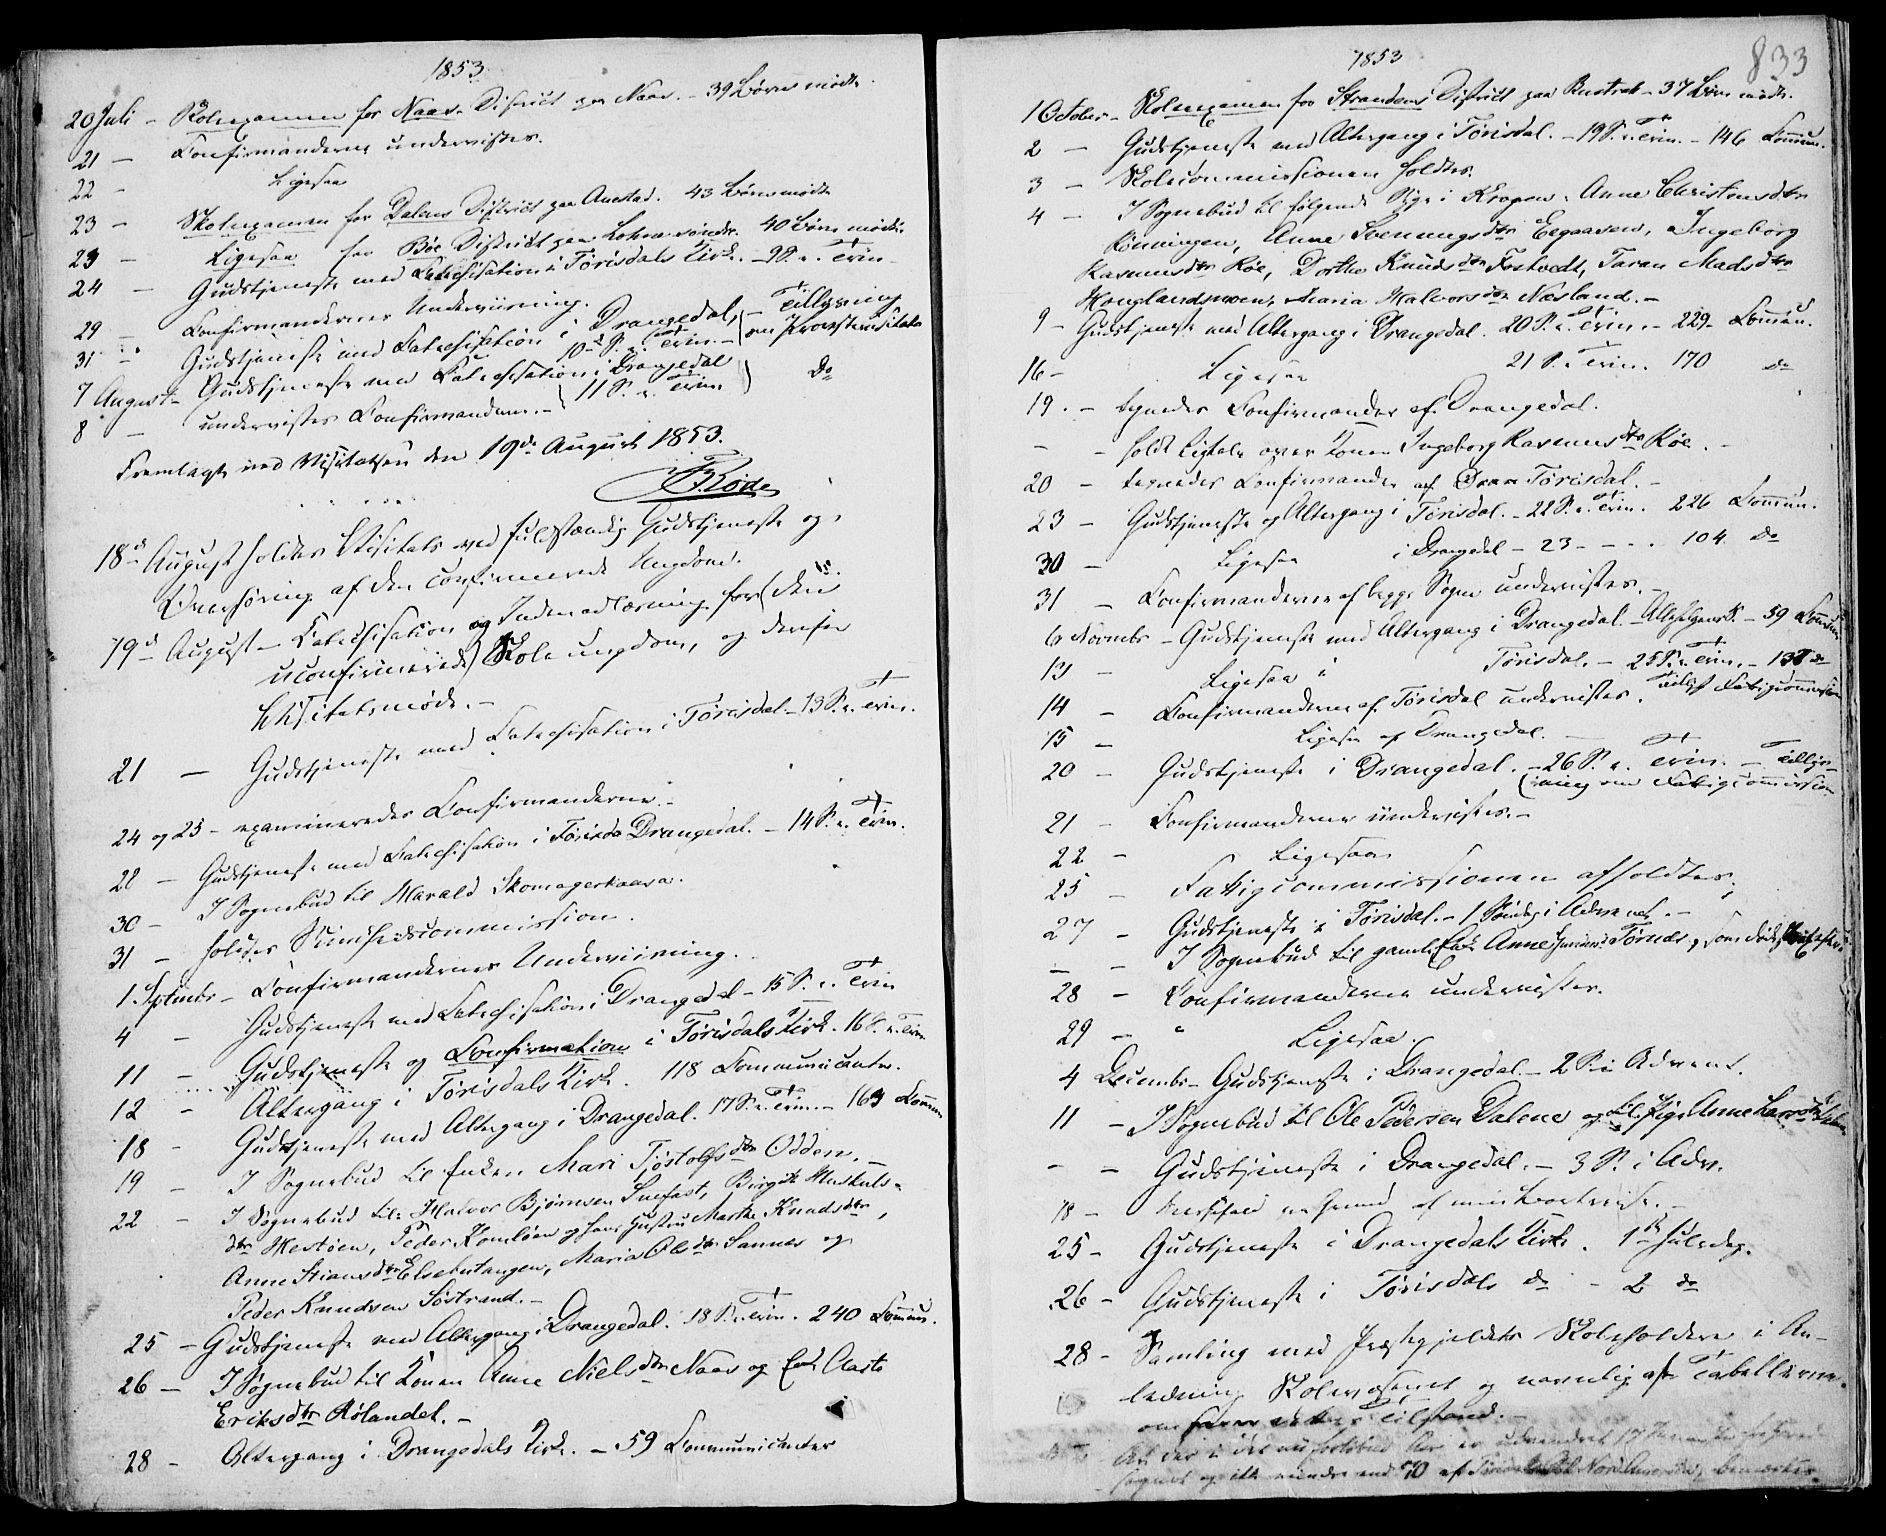 1853
20 Juli – Skoleexamen for Naas District paa Naas. – 39 Børn mødte.
21 – Confirmanderne undervistes.
22 – Ligesaa
23 – Skoleexamen for Dalens District paa Anestad. 43 Børn mødte
23 – Ligesaa for Bøe District paa 40 Børn mødte.
24 – Gudstjeneste med Catechisation i Tørisdals Kirke. – 9 S. e. Trin.
29 – Confirmandernes Underviisning.
31 – Gudstjeneste med Catechisation i Drangedal, – Tillysning
10de S. e. Trin. – om Provstevisitats
7 August – Gudstjeneste med Catechisation i Drangedal Do
8 – undervistes Confirmanderne. – 11 S. e. Trin.
Fremlagt ved Visitatsen den 19de August 1853.
Rode
18de August holdtes Visitats med fuldstændig Gudstjeneste og
Overhøring af den confirmerede Ungdom.
19de August – Catechisation og Indenadlæsning for (den
uconfirmerede) Skoleungdom, og derefter
Visitatsmøde. –
21 – Gudstjeneste med Catechisation i Tørisdal. – 13 S. e. Trin.
24 og 25 – examineredes Confirmanderne. –
28 – Gudstjeneste med Catechisation i Tørisda Drangedal. – 14 S. e. Trin.
30 – I Sognebud til Harald Skomagerkaasa.
31 – holdtes Sundhedscommission.
1 Septembr – Confirmandernes Underviisning.
4 – Gudstjeneste med Catechisation i Drangedal – 15 S. e. Trin
11 – Gudstjeneste og Confirmation i Tørisdals Kirke. 16 S. e. Trin
12 – Altergang i Tørisdals Kirke. 118 Communicanter.
18 – Gudstjeneste med Altergang i Drangedal. 17 S. e. Trin. – 163 Commun
19 – I Sognebud til Enken Mari Tjøstolfsdtr Odden. –
22 – I Sognebud til: Halvor Bjørnsen Birgit
dtr Hestøen, Peder og hans Hustru Marthe Knudsdtr,
Anne Elsebutangen, Maria Olsdtr Sannes og
Peder Knudsen Søstrand. –
25 – Gudstjeneste med Altergang i Drangedal. 18 S. e. Trin. 240 Commun.
26 – I Sognebud til Konen Anne Nielsdtr Naas og Enke Aaste
Eriksdtr Rølandet. –
28 – Altergang i Drangedals Kirke. – 59 Communicanter
1853
833
1 October – Skoleexamen for Strandens District paa – 37 Børn mødte.
2 – Gudstjeneste med Altergang i Tørisdal. – 19 S. e. Trin. – 146 Commun.
3 – Skolecommissionen holdtes.
4 – I Sognebud til følgende Syge i Krogen: Anne Christensdtr
Rønningen, Anne Svenningsdtr Eegaasen, Ingeborg
Rasmusdtr Røe, Dorthe Knudsdtr Tostvedt, Taran Madsdtr
Houglandsmoen, Maria Halvorsdtr Næsland. –
9 – Gudstjeneste med Altergang i Drangedal. 20 S. e. Trin. – 229 Commun.
16 – Ligesaa 21 S. e. Trin. 170 do
19. – tegnedes Confirmander af Drangedal.
– – holdt Ligtale over Konen Ingeborg Rasmusdtr Røe.
20 – tegnedes Confirmander af Tørisdal. –
23 – Gudstjeneste og Altergang i Tørisdal. – 22 S. e. Trin. 226 Commun.
30 – Ligesaa i Drangedal – 23 – – – 104 Do
31 – Confirmanderne af begge Sogne undervistes. –
6 Novembr – Gudstjeneste med Altergang i Drangedal – Allehelgens F. – 59 Commun
13 – Ligesaa i Tørisdal. – 25 S. e. Trin. – do
14 – Confirmanderne af Tørisdal undervistes. Fattigcommission
15 – Ligesaa af Drangedal. –
20 – Gudstjeneste i Drangedal. – 26 S. e. Trin. – Tillys-
ning om Fattigcommission
21 – Confirmanderne undervistes. –
22 – Ligesaa
25 – Fattigcommissionen afholdtes.
27 – Gudstjeneste i Tørisdal. – 1 Søndag i Advent. –
– – I Sognebud til gamle Enke Anne Tørnes, som døde
28 – Confirmanderne undervistes.
29 – " Ligesaa.
4 Decembr – Gudstjeneste i Drangedal – 2 S. i Advent.
11 – I Sognebud til Ole Pedersen Dalene og til Pige Anne
– – Gudstjeneste i Drangedal. – 3 S. i Adv.
18 – Messefald paa Grund af min
25 – Gudstjeneste i Drangedals Kirke. 1ste Juledag.
26 – Gudstjeneste i Tørisdals do – 2 do
28 – Samling med Præstegjeldets Skoleholdere i An-
ledning Skolevæsenet og navnlig af Tabellerne
om Tilstand. –
At der i det nu forløbne Aar er udvandret 17
Sognet og ikke mindre end 70 af Tørisdal til Nord America, bemærkes